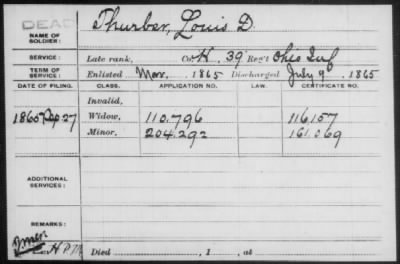 DEAD
Thurber, Louis D.
NAME OF SOLDIER:
SERVICE: Late rank, Co. H. 39 Reg't Ohio Inf
TERM OF SERVICE: Enlisted Mar. , 1865 Discharged July 9 , 1865
DATE OF FILING. CLASS. APPLICATION NO. LAW. CERTIFICATE NO.
Invalid,
1865 27 Widow, 110.796 116157
Minor, 204.292 161.069
ADDITIONAL SERVICES:
REMARKS:
Died , 1 , at